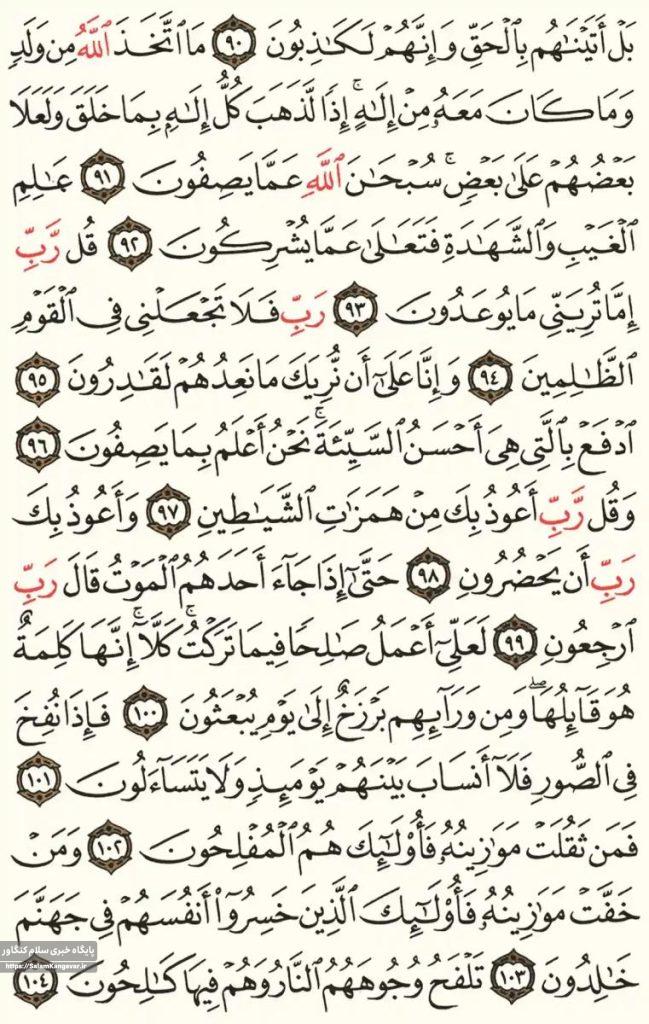 بَلْ أَتَيْنَاهُم بِالْحَقِّ وَإِنَّهُمْ لَكَاذِبُونَ ﴿٩٠﴾ مَا اتَّخَذَ اللَّهُ مِن وَلَدٍ
وَمَا كَانَ مَعَهُ مِنْ إِلَٰهٍ ۚ إِذًا لَّذَهَبَ كُلُّ إِلَٰهٍ بِمَا خَلَقَ وَلَعَلَا
بَعْضُهُمْ عَلَىٰ بَعْضٍ ۚ سُبْحَانَ اللَّهِ عَمَّا يَصِفُونَ ﴿٩١﴾ عَالِمِ
الْغَيْبِ وَالشَّهَادَةِ فَتَعَالَىٰ عَمَّا يُشْرِكُونَ ﴿٩٢﴾ قُل رَّبِّ
إِمَّا تُرِيَنِّي مَا يُوعَدُونَ ﴿٩٣﴾ رَبِّ فَلَا تَجْعَلْنِي فِي الْقَوْمِ
الظَّالِمِينَ ﴿٩٤﴾ وَإِنَّا عَلَىٰ أَن نُّرِيَكَ مَا نَعِدُهُمْ لَقَادِرُونَ ﴿٩٥﴾
ادْفَعْ بِالَّتِي هِيَ أَحْسَنُ السَّيِّئَةَ ۚ نَحْنُ أَعْلَمُ بِمَا يَصِفُونَ ﴿٩٦﴾
وَقُل رَّبِّ أَعُوذُ بِكَ مِنْ هَمَزَاتِ الشَّيَاطِينِ ﴿٩٧﴾ وَأَعُوذُ بِكَ
رَبِّ أَن يَحْضُرُونِ ﴿٩٨﴾ حَتَّىٰ إِذَا جَاءَ أَحَدَهُمُ الْمَوْتُ قَالَ رَبِّ
ارْجِعُونِ ﴿٩٩﴾ لَعَلِّي أَعْمَلُ صَالِحًا فِيمَا تَرَكْتُ ۚ كَلَّا ۚ إِنَّهَا كَلِمَةٌ
هُوَ قَائِلُهَا ۖ وَمِن وَرَائِهِم بَرْزَخٌ إِلَىٰ يَوْمِ يُبْعَثُونَ ﴿١٠٠﴾ فَإِذَا نُفِخَ
فِي الصُّورِ فَلَا أَنسَابَ بَيْنَهُمْ يَوْمَئِذٍ وَلَا يَتَسَاءَلُونَ ﴿١٠١﴾
فَمَن ثَقُلَتْ مَوَازِينُهُ فَأُولَٰئِكَ هُمُ الْمُفْلِحُونَ ﴿١٠٢﴾ وَمَنْ
خَفَّتْ مَوَازِينُهُ فَأُولَٰئِكَ الَّذِينَ خَسِرُوا أَنفُسَهُمْ فِي جَهَنَّمَ
خَالِدُونَ ﴿١٠٣﴾ تَلْفَحُ وُجُوهَهُمُ النَّارُ وَهُمْ فِيهَا كَالِحُونَ ﴿١٠٤﴾
پایگاه خبری سلام کنگاور
https://SalamKangavar.ir